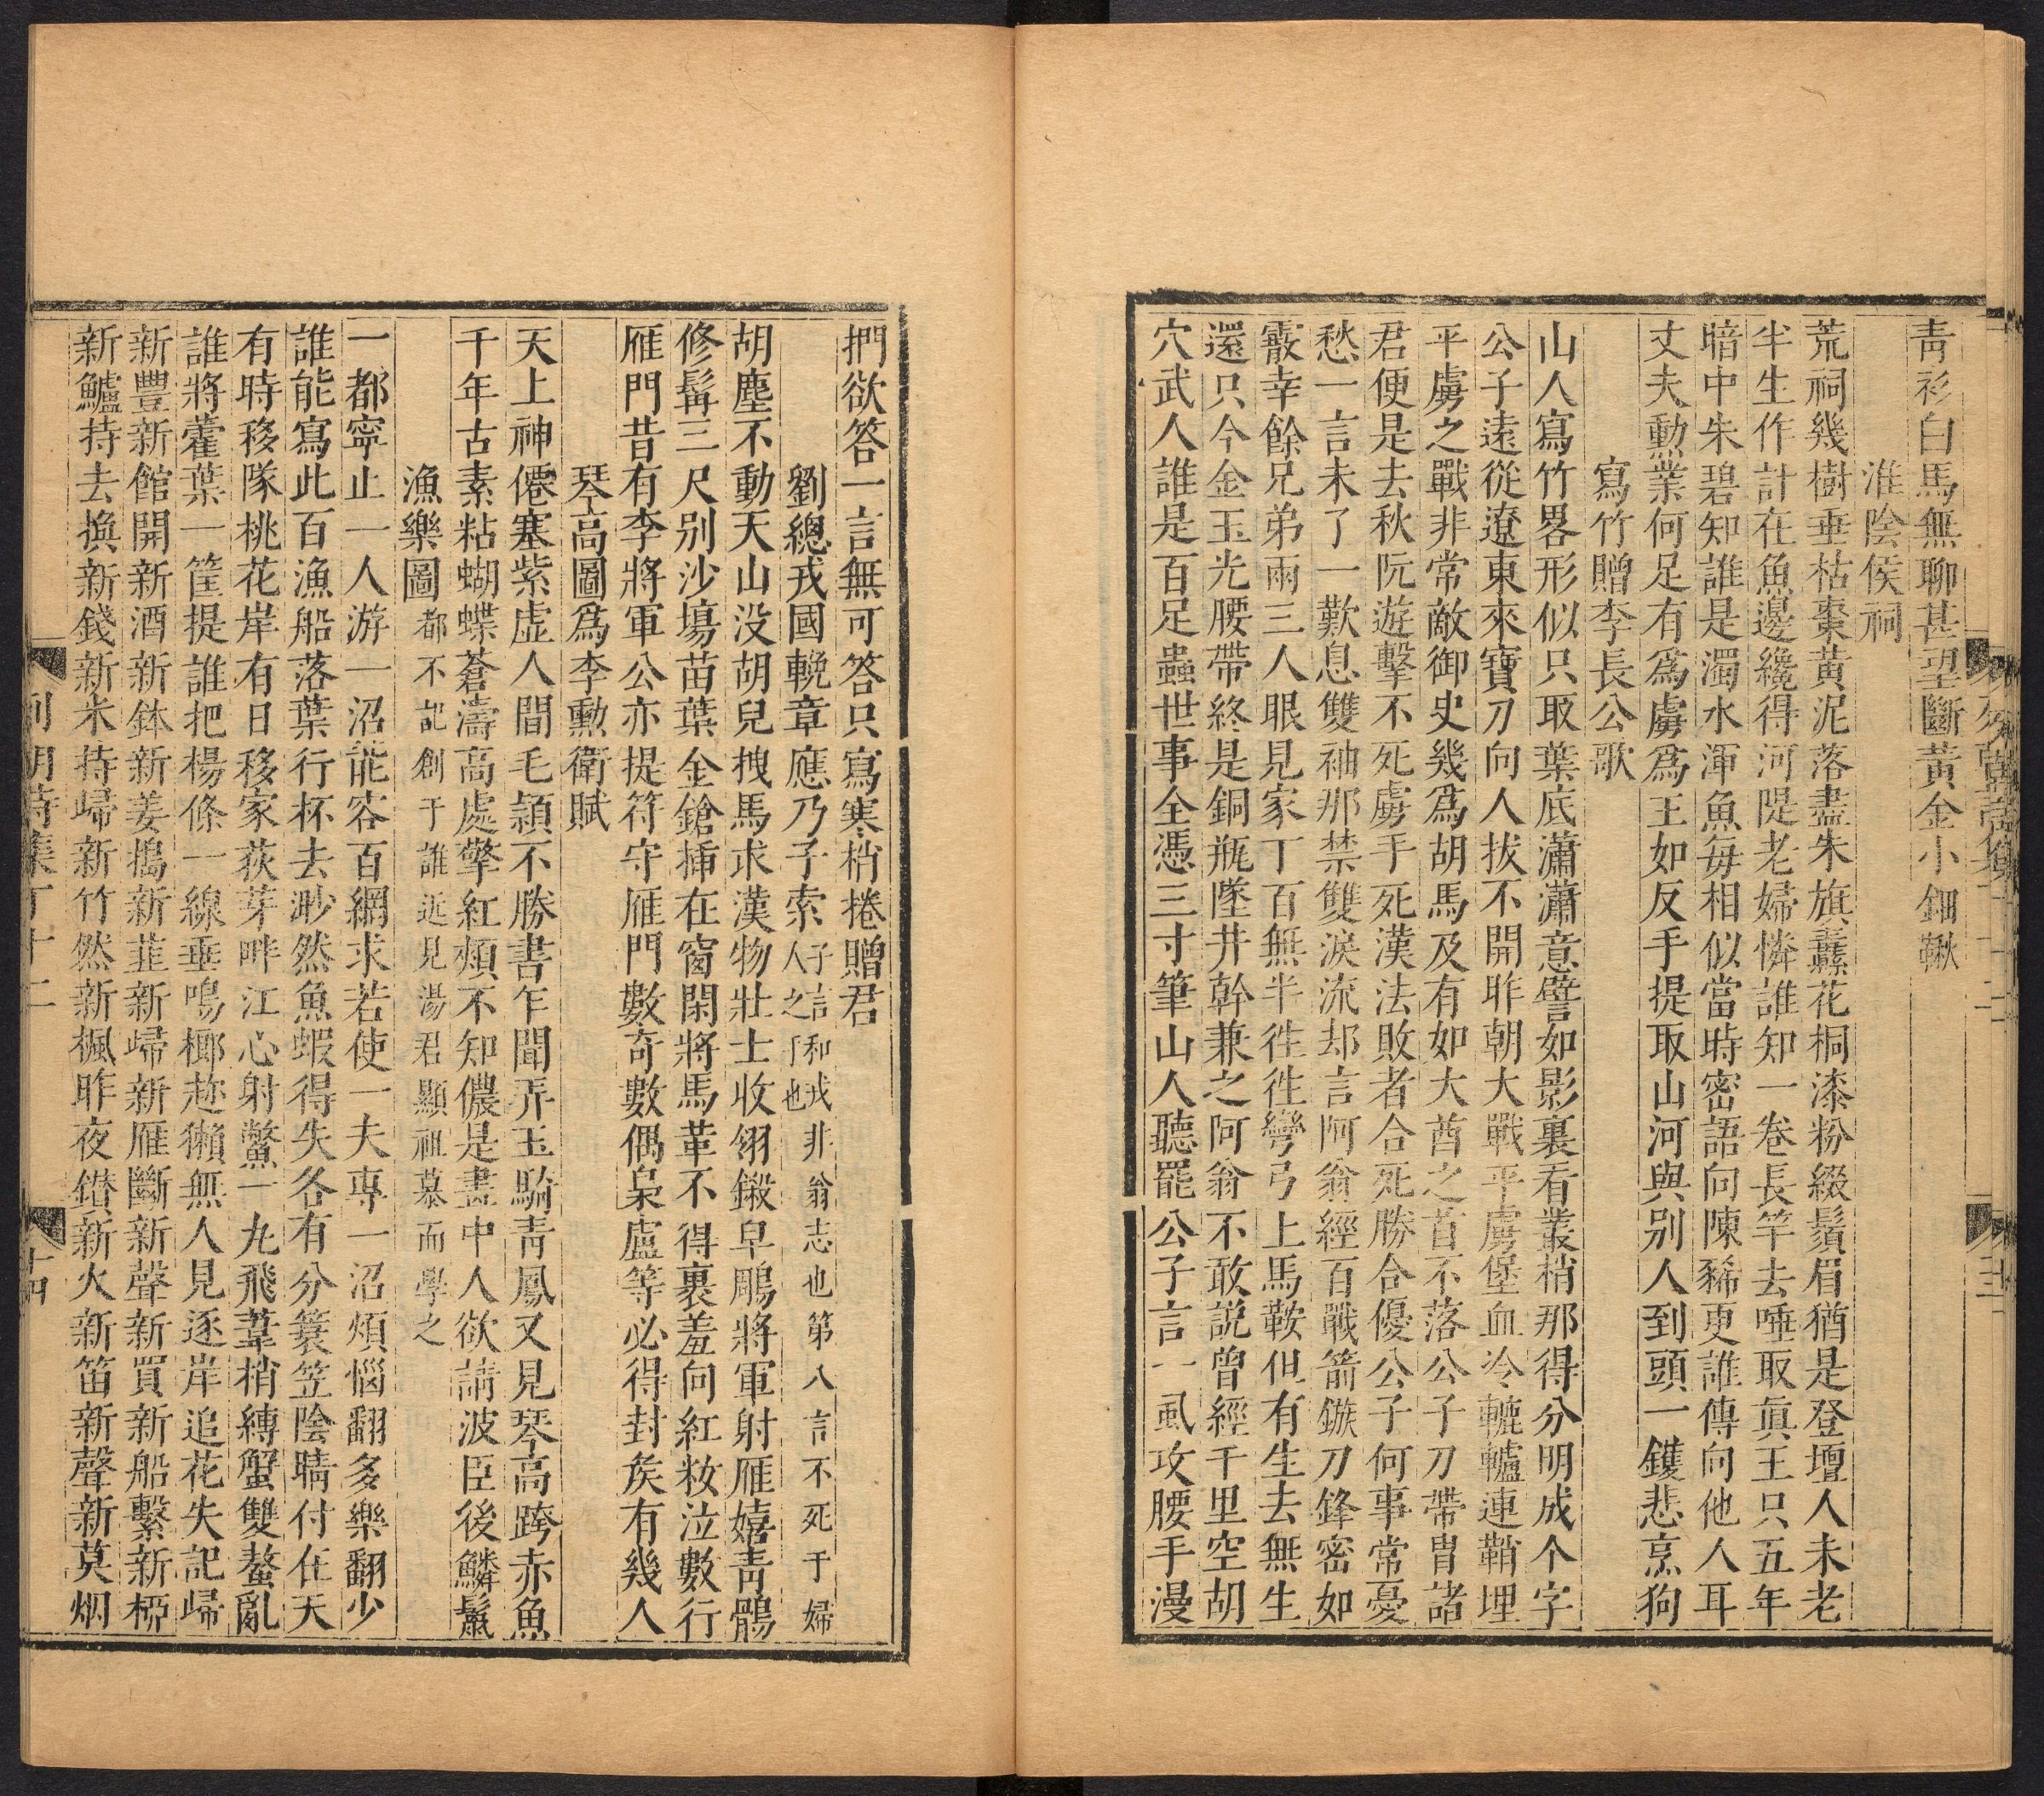 青衫白馬無聊甚望斷黃金小鈿鞦
淮陰侯祠
荒祠幾樹垂枯棗黃泥落盡朱旗纛花桐漆粉綴鬚眉猶是登壇人未老
半生作計在魚邊纔得河隄老婦憐誰知一卷長竿去唾取眞王只五年
暗中朱碧知誰是濁水渾魚每相似當時密語向陳豨更誰傳向他人耳
丈夫勲業何足有爲虜爲王如反手提取山河與別人到頭一鑊悲烹狗
寫竹贈李長公歌
山人寫竹畧形似只取葉底瀟瀟意譬如影裏看叢梢那得分明成个字
公子遠從遼東來寶刀向人拔不開昨朝大戰平虜堡血冷轆轤連鞘埋
平虜之戰非常敵御史幾爲胡馬及有如大酋之首不落公子刀帶胄諸
君便是去秋阮遊擊不死虜手死漢法敗者合死勝合優公子何事常憂
愁一言未了一歎息雙袖那禁雙淚流却言阿翁經百戰箭鏃刀鋒密如
霰幸餘兄弟兩三人眼見家丁百無半徃徃彎弓上馬鞍但有生去無生
還只今金玉光腰帶終是銅瓶墜井幹兼之阿翁不敢説曾經千里空胡
穴武人誰是百足蟲世事全憑三寸筆山人聽罷公子言一虱攻腰手漫
捫欲答一言無可答只寫寒梢捲贈君
劉總戎國輓章應乃子索子言和戎非翁志也第八言不死于婦人之手也
胡塵不動天山没胡兒拽馬求漢物壯士收翎鍛皁鵰將軍射雁嬉青鶻
修髯三尺别沙塲苗葉金鎗揷在窗閑將馬革不得裹羞向紅粧泣數行
雁門昔有李將軍公亦提符守雁門數竒數偶梟盧等必得封矦有幾人
琴高圖爲李勳衛賦
天上神僊塞紫虛人間毛頴不勝書乍聞弄玉騎青鳳又見琴高跨赤魚
千年古素粘蝴蝶蒼濤高處擎紅頰不知儂是畫中人欲請波臣後鱗鬛
漁樂圖都不記創于誰近見湯君顯祖慕而學之
一都寧止一人游一沼能容百網求若使一夫專一沼煩惱翻多樂翻少
誰能寫此百漁船落葉行杯去渺然魚蝦得失各有分簑笠陰晴付在天
有時移隊桃花岸有日移家荻芽畔江心射鱉一丸飛葦梢縛蟹雙螯亂
誰將藿葉一筐提誰把楊條一線垂鳴榔趂獺無人見逐岸追花失記歸
新豐新館開新酒新鉢新姜搗新韮新歸新雁斷新聲新買新船繫新桺
新鱸持去換新錢新米持歸新竹然新楓昨夜鑽新火新笛新聲新莫烟